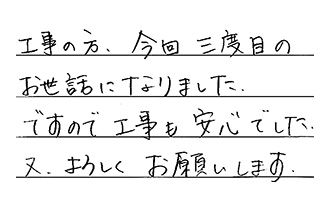 工事の方、今回 三度目の
お世話になりました.
ですので 工事も 安心でした.
又、よろしく お願いします.